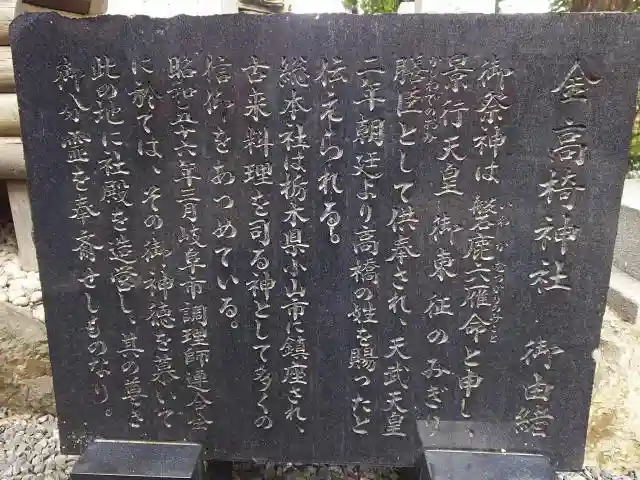 金高椅神社 御由緒
御祭神は磐鹿六雁命と申し、
いわかむつかりのみこと
景行天皇御東征のみぎり
膳臣として供奉され、天武天皇
かしわでのおみ
二年朝廷より高橋の姓を賜ったと
伝えられる。
総本社は栃木県小山市に鎮座され、
古来料理を司る神として多くの
信仰をあつめている。
昭和五十六年三月岐阜市調理師連合会
に於ては、その御神徳を慕いて
此の地に社殿を造営し、其の尊き
御分霊を奉斎せしものなり。